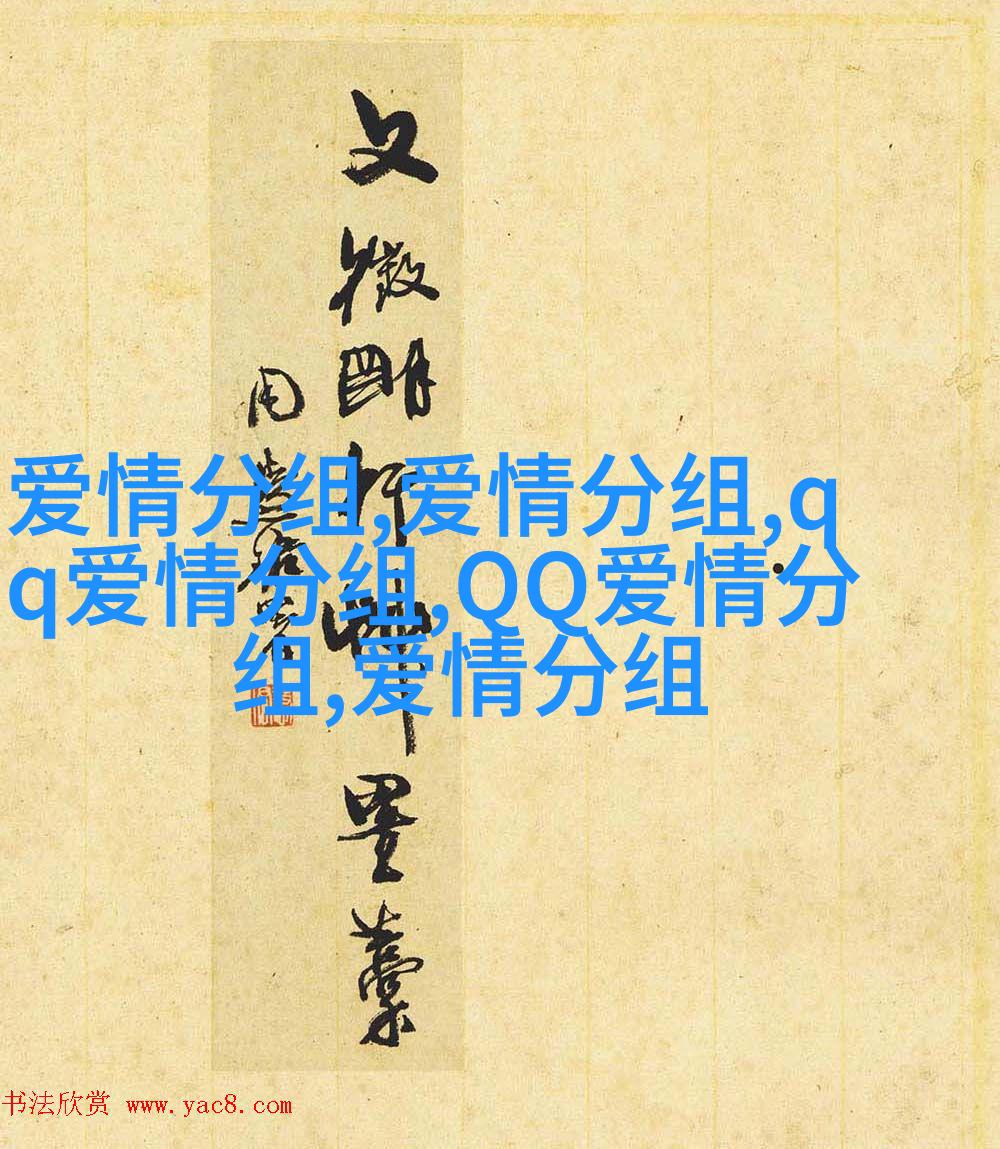 文徵明行書墨藁
爱情分组,爱情分组,q
q爱情分组,QQ爱情分
组,爱情分组
书法欣赏 www.yac8.com